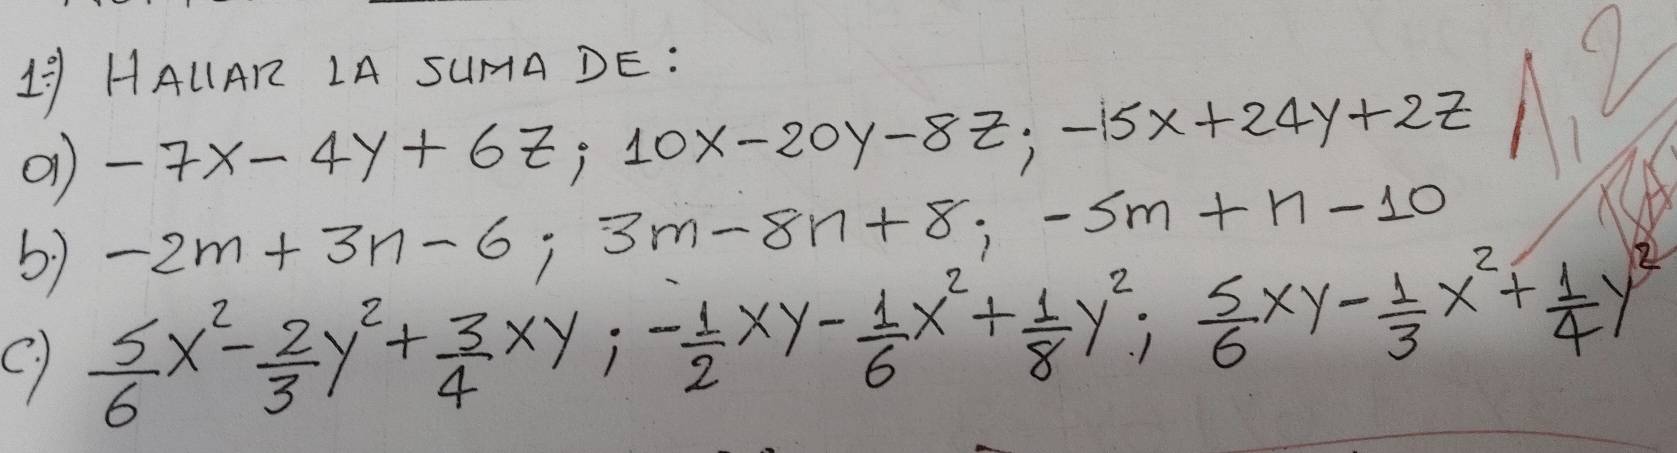 1:) HALLAR LA SUMA DE:
a) -7x - 4y + 6z; 10x - 20y - 8z; -15x + 24y + 2z
b) -2m + 3n - 6; 3m - 8n + 8; -5m + n - 10
c) 5/6 x² - 2/3 y² + 3/4 xy; -1/2 xy - 1/6 x² + 1/8 y²; 5/6 xy - 1/3 x² + 1/4 y²
1,2